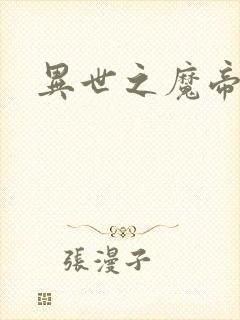 異世之魔帝
張漫子